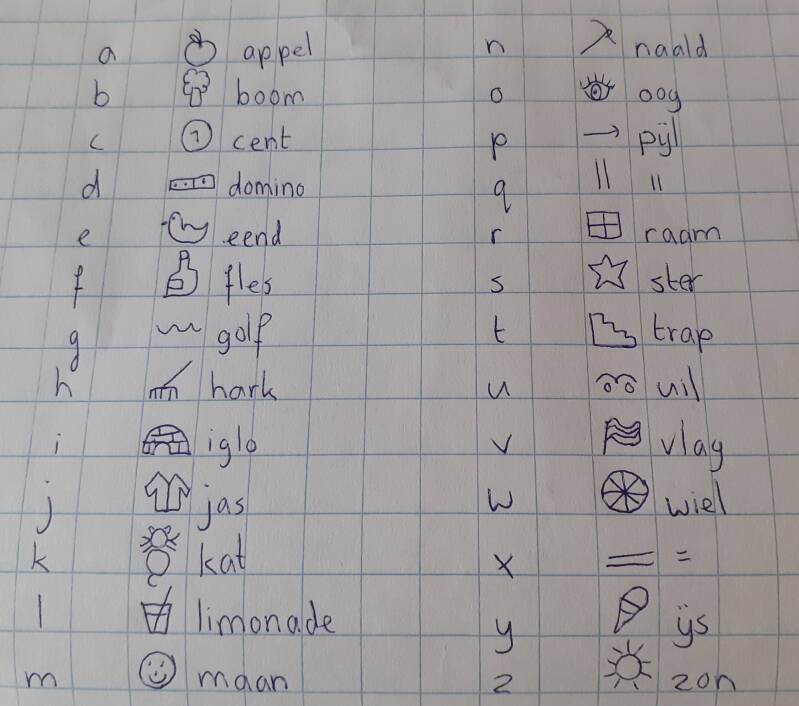 a appel
b boom
c 1 cent
d domino
e eend
f fles
g golf
h hark
i iglo
j jas
k kat
l limonade
m maan
n naald
o oog
p → pijl
q || "
r raam
s ster
t trap
u uil
v vlag
w wiel
x = =
y ijs
z zon